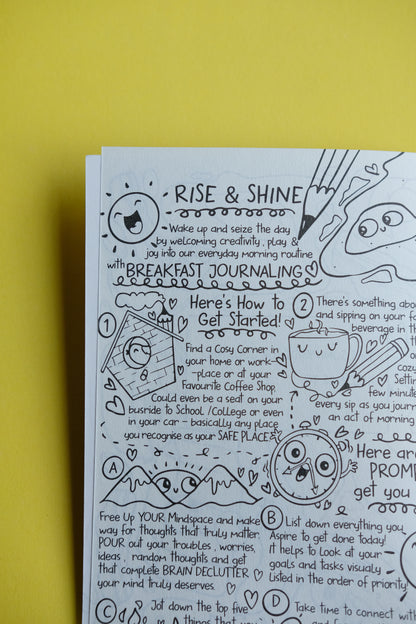 RISE & SHINE
Wake up and seize the day
by welcoming creativity, play &
joy into our everyday morning routine
with BREAKFAST JOURNALING
Here's How to
Get Started!
1
Find a Cosy Corner in
your home or work-
-place or at your
Favourite Coffee Shop.
Could even be a seat on your
busride to School /College or even
in your car - basically any place
you recognise as your SAFE PLACE
2
There's something abo
and sipping on your fa
beverage in th
cozy
Setti
few minute
every sip as you journ
an act of morning
Here are
PROMP
get you
A
Free Up YOUR Mindspace and make
way for thoughts that truly matter.
POUR out your troubles, worries,
ideas, random thoughts and get
that complete BRAIN DECLUTTER
your mind truly deserves.
B
List down everything you
Aspire to get done today!
It helps to Look at your
goals and tasks visualy
Listed in the order of priority
C
Jot down the top five
things that you
D
Take time to connect with